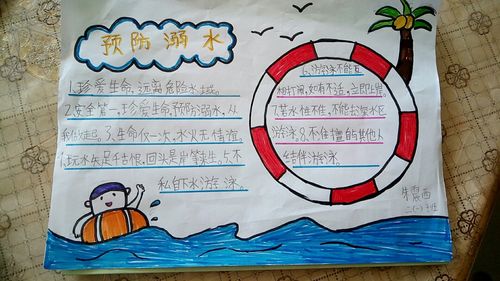 预防溺水
1.珍爱生命,远离危险水域。
2.安全第一,珍爱生命,预防溺水,从
我做起。3.生命仅一次,水火无情谊。
4.玩水失足千古恨,回头是岸笔来生。5.不
私自下水游泳。
6.游泳不能互
相打闹,如有不适,立即上岸
7.若水性不佳,不能去深水区
游泳。8.不准擅的其他人
结伴游泳。
二(一)班